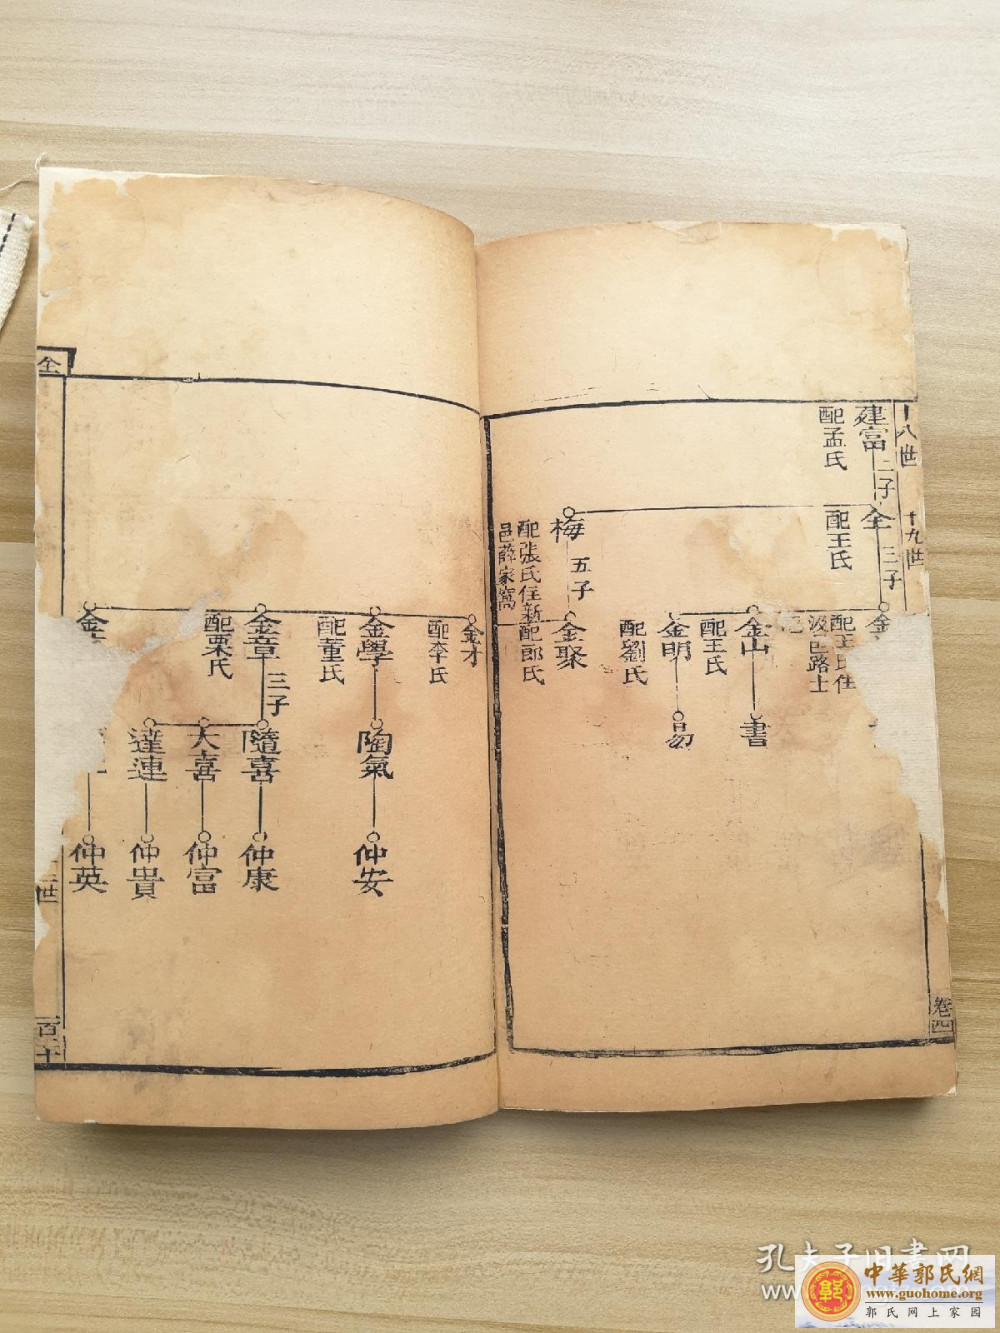 十八世
建富
二子
配孟氏
十九世
全
三子
配王氏
梅
五子
配張氏住新
邑薛家窩
金
配王氏住
汲邑路士
金山
配王氏
書
金明
配劉氏
易
金聚
配郎氏
卷四
金才
配李氏
金學
配董氏
陶氣
仲安
金章
三子
配栗氏
隨喜
仲康
大喜
仲富
達連
仲貴
金
仲英
世
全
百二十
孔夫子旧书网
中華郭氏網
www.guohome.org
郭氏网上家园